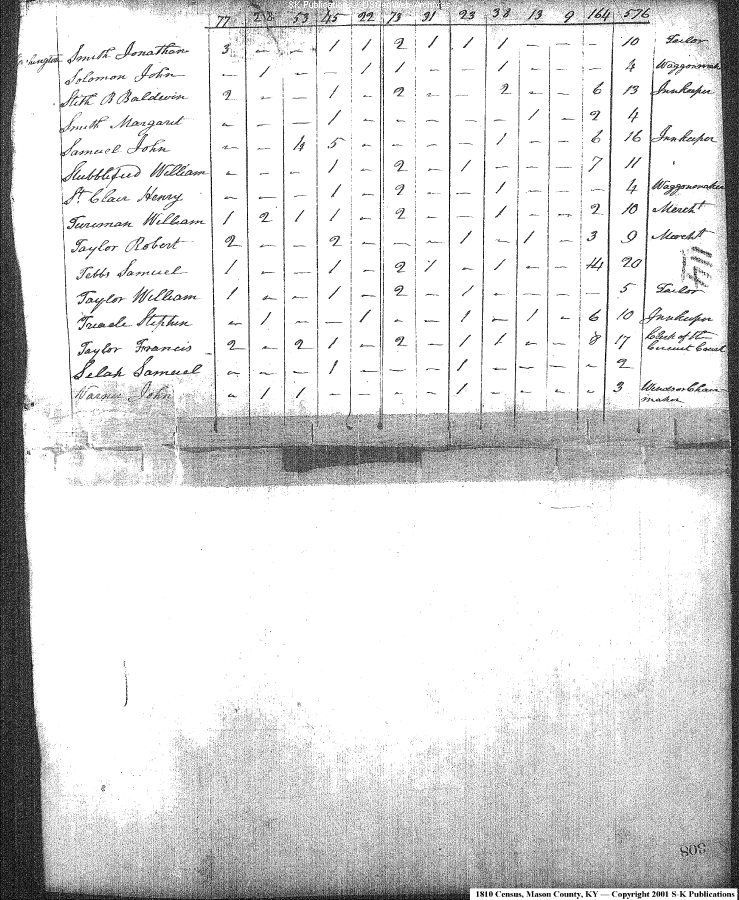 77 22 53 45 22 73 31 23 38 13 9 164 576
Smith Jonathan 3 – – 1 1 2 1 1 1 – – – 10 Tailor
Solomon John – 1 – – 1 1 – – 1 – – – 4 Waggonmak
Stith B Baldwin 2 – – 1 – 2 – – 2 – – 6 13 Innkeeper
Smith Margaret – – – 1 – – – – – 1 – 2 4
Samuel John – – 4 5 – – – – 1 – – 6 16 Innkeeper
Stubblefied William – – – 1 – 2 – 1 – – – 7 11
St. Clair Henry – – – 1 – 2 – – 1 – – – 4 Waggonmaker
Tureman William 1 2 1 1 – 2 – – 1 – – 2 10 Mercht
Taylor Robert 2 – – 2 – – – 1 – 1 – 3 9 Mercht
Tebbs Samuel 1 – – 1 – 2 1 – 1 – – 14 20
Taylor William 1 – – 1 – 2 – 1 – – – – 5 Tailor
Treacle Stephen – 1 – – 1 – – 1 – 1 – 6 10 Innkeeper
Taylor Francis 2 – 2 1 – 2 – 1 1 – – 8 17 Clerk of the
Circuit Court
Selah Samuel – – – 1 – – – 1 – – – – 2
Warner John – 1 1 – – – – 1 – – – – 3 Windsor Chair
maker
308
1810 Census, Mason County, KY — Copyright 2001 S-K Publications